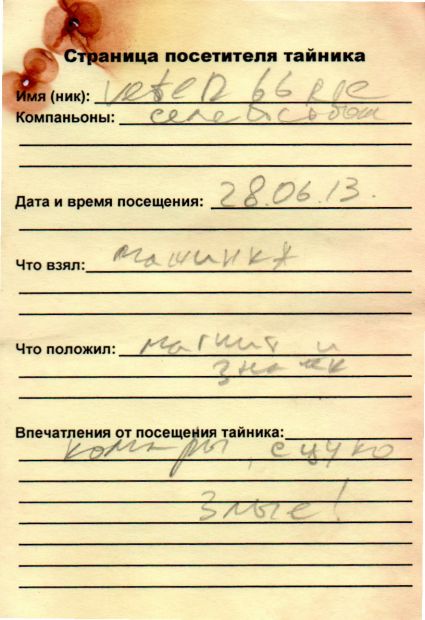 Страница посетителя тайника
Имя (ник): veter 66 rus
Компаньоны: семейством
Дата и время посещения: 28.06.13.
Что взял: машинка
Что положил: магнит и
значок
Впечатления от посещения тайника:
комары, сцуко
злые!